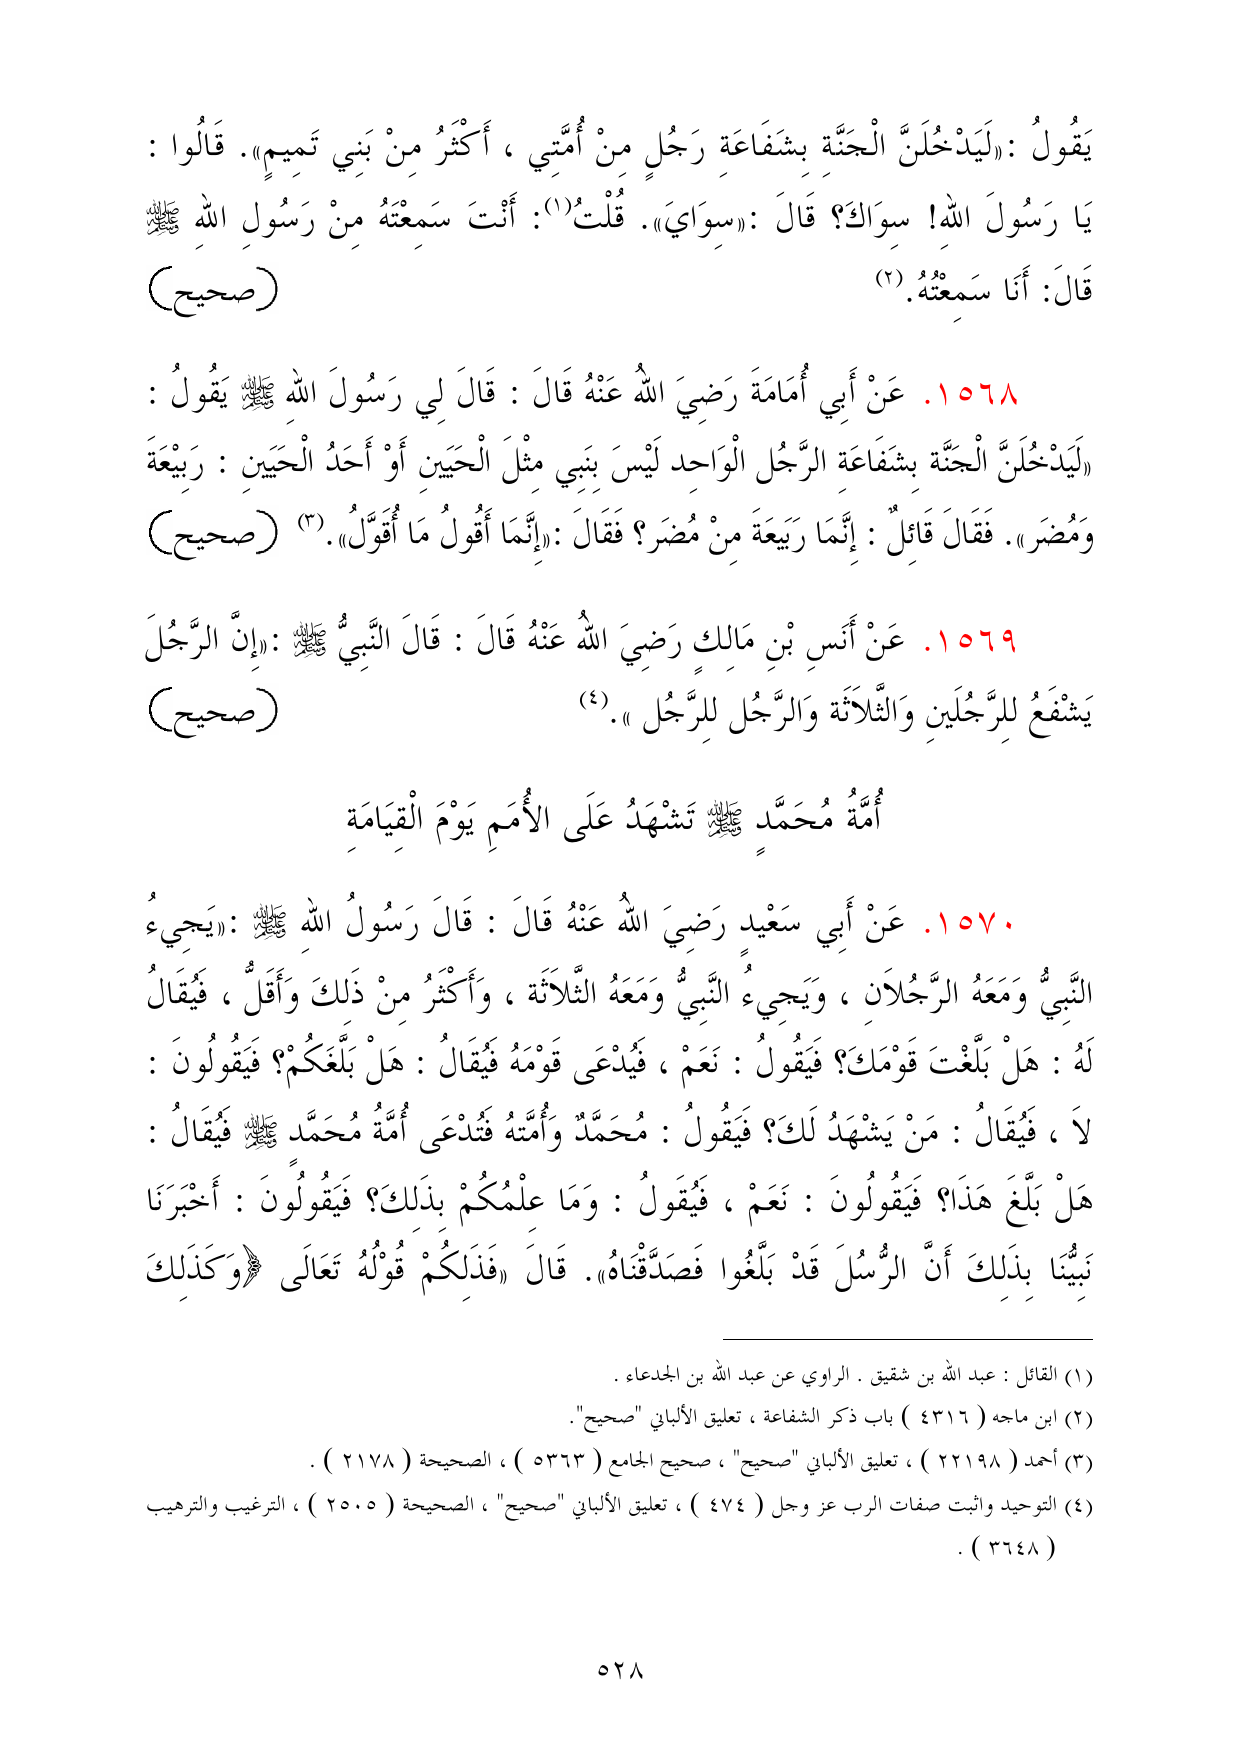 يَقُولُ :«لَيَدْخُلَنَّ الْجَنَّةِ بِشَفَاعَةِ رَجُلٍ مِنْ أُمَّتِي ، أَكْثَرُ مِنْ بَنِي تَمِيمٍ». قَالُوا :
يَا رَسُولَ اللهِ! سِوَاكَ؟ قَالَ :«سِوَايَ». قُلْتُ(١): أَنْتَ سَمِعْتَهُ مِنْ رَسُولِ اللهِ ﷺ
قَالَ: أَنَا سَمِعْتُهُ.(٢) (صحيح)
١٥٦٨. عَنْ أَبِي أُمَامَةَ رَضِيَ اللهُ عَنْهُ قَالَ : قَالَ لِي رَسُولَ اللهِ ﷺ يَقُولُ :
«لَيَدْخُلَنَّ الْجَنَّة بِشَفَاعَةِ الرَّجُلِ الْوَاحِدِ لَيْسَ بِنَبِي مِثْلَ الْحَيَيَنِ أَوْ أَحَدُ الْحَيَينِ : رَبِيْعَةَ
وَمُضَر». فَقَالَ قَائِلٌ : إِنَّمَا رَبَيعَةَ مِنْ مُضَر؟ فَقَالَ :«إِنَّمَا أَقُولُ مَا أُقَوَّلُ».(٣) (صحيح)
١٥٦٩. عَنْ أَنَسِ بْنِ مَالِكٍ رَضِيَ اللهُ عَنْهُ قَالَ : قَالَ النَّبِيُّ ﷺ :«إِنَّ الرَّجُلَ
يَشْفَعُ لِلرَّجُلَينِ وَالثَّلاَثَة وَالرَّجُل لِلرَّجُل ».(٤) (صحيح)
أُمَّةُ مُحَمَّدٍ ﷺ تَشْهَدُ عَلَى الأُمَمِ يَوْمَ الْقِيَامَةِ
١٥٧٠. عَنْ أَبِي سَعْيدٍ رَضِيَ اللهُ عَنْهُ قَالَ : قَالَ رَسُولُ اللهِ ﷺ :«يَجِيءُ
النَّبِيُّ وَمَعَهُ الرَّجُلاَنِ ، وَيَجِيءُ النَّبِيُّ وَمَعَهُ الثَّلاَثَة ، وَأَكْثَرُ مِنْ ذَلِكَ وَأَقَلُّ ، فَيُقَالُ
لَهُ : هَلْ بَلَّغْتَ قَوْمَكَ؟ فَيَقُولُ : نَعَمْ ، فَيُدْعَى قَوْمَهُ فَيُقَالُ : هَلْ بَلَّغَكُمْ؟ فَيَقُولُونَ :
لاَ ، فَيُقَالُ : مَنْ يَشْهَدُ لَكَ؟ فَيَقُولُ : مُحَمَّدٌ وَأُمَّتهُ فَتُدْعَى أُمَّةُ مُحَمَّدٍ ﷺ فَيُقَالُ :
هَلْ بَلَّغَ هَذَا؟ فَيَقُولُونَ : نَعَمْ ، فَيُقَولُ : وَمَا عِلْمُكُمْ بِذَلِكَ؟ فَيَقُولُونَ : أَخْبَرَنَا
نَبِيُّنَا بِذَلِكَ أَنَّ الرُّسُلَ قَدْ بَلَّغُوا فَصَدَّقْنَاهُ». قَالَ «فَذَلِكُمْ قُوْلُهُ تَعَالَى ﴿وَكَذَلِكَ
(١) القائل : عبد الله بن شقيق . الراوي عن عبد الله بن الجدعاء .
(٢) ابن ماجه ( ٤٣١٦ ) باب ذكر الشفاعة ، تعليق الألباني "صحيح".
(٣) أحمد ( ٢٢١٩٨ ) ، تعليق الألباني "صحيح" ، صحيح الجامع ( ٥٣٦٣ ) ، الصحيحة ( ٢١٧٨ ) .
(٤) التوحيد واثبت صفات الرب عز وجل ( ٤٧٤ ) ، تعليق الألباني "صحيح" ، الصحيحة ( ٢٥٠٥ ) ، الترغيب والترهيب
( ٣٦٤٨ ) .
٥٢٨